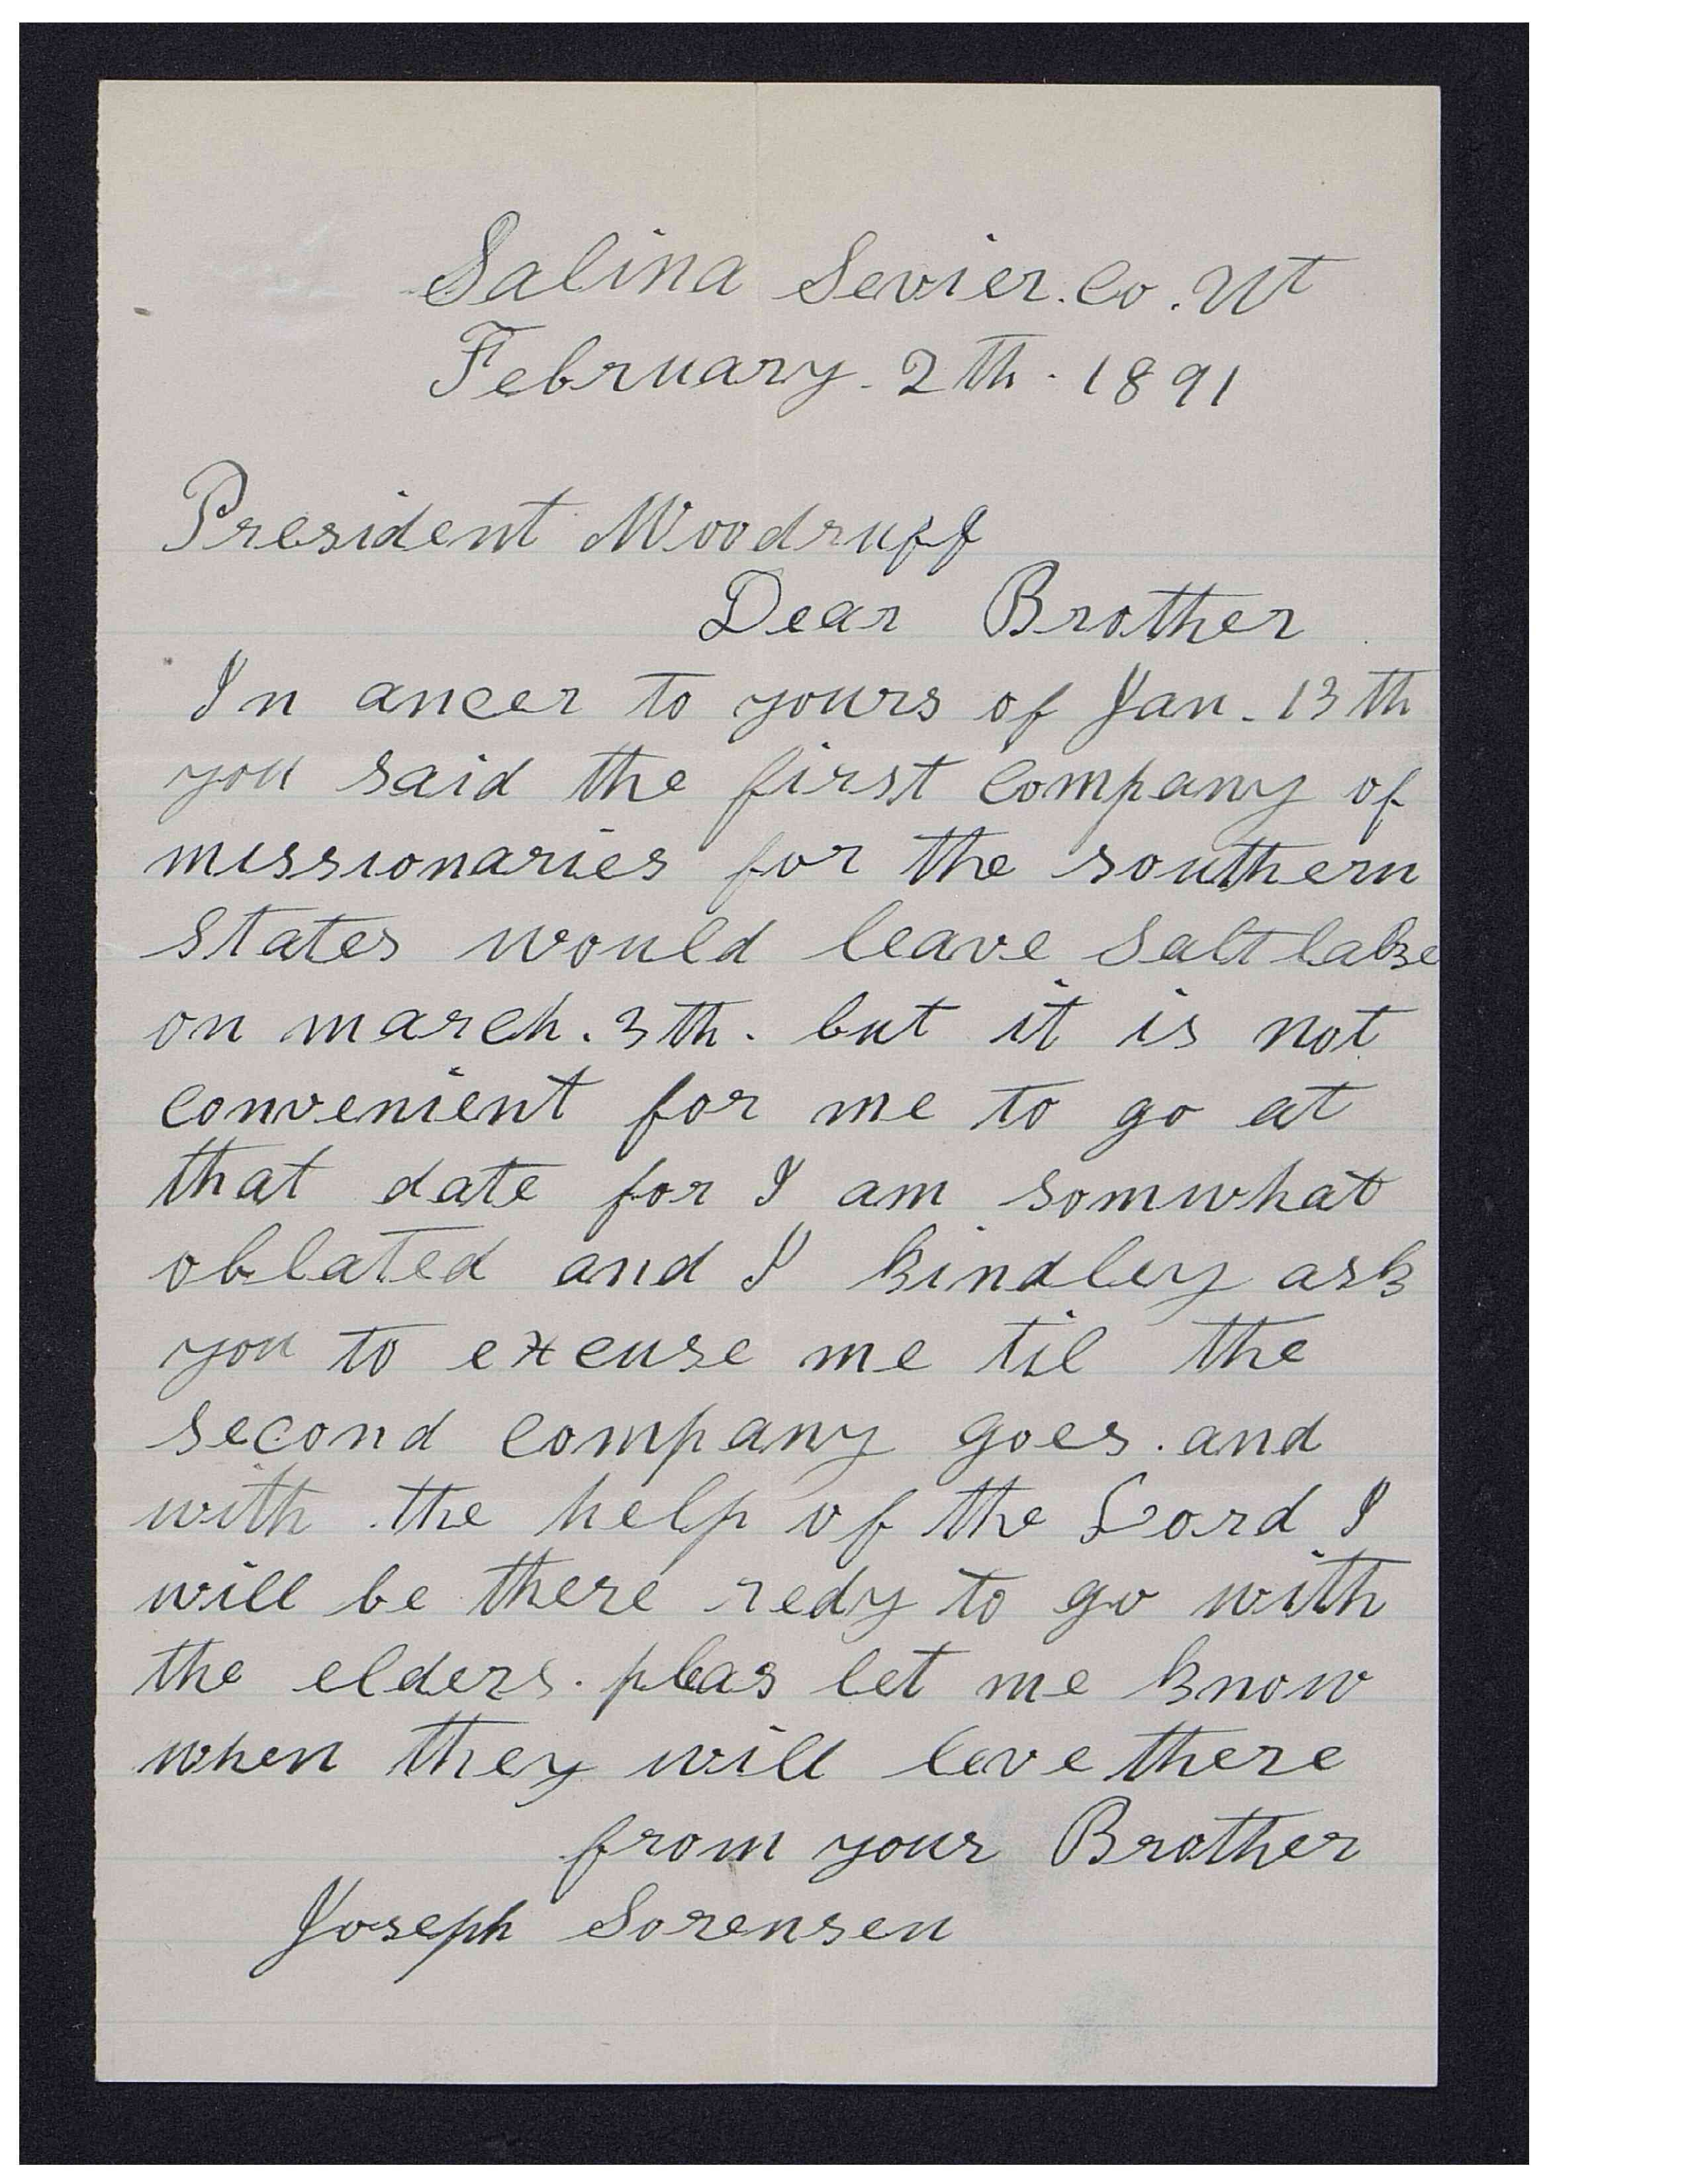 Salina Sevier. Co. Ut
February. 2th. 1891
President Woodruff
Dear Brother
In ancer to yours of Jan. 13th
you said the first company of
missionaries for the southern
states would leave Salt lake
on march. 3th. but it is not
convenient for me to go at
that date for I am somwhat
oblated and I kindley ask
you to excuse me til the
second company goes. and
with the help of the Lord I
will be there redy to go with
the elders. pleas let me know
when they will leve there
from your Brother
Joseph Sorensen